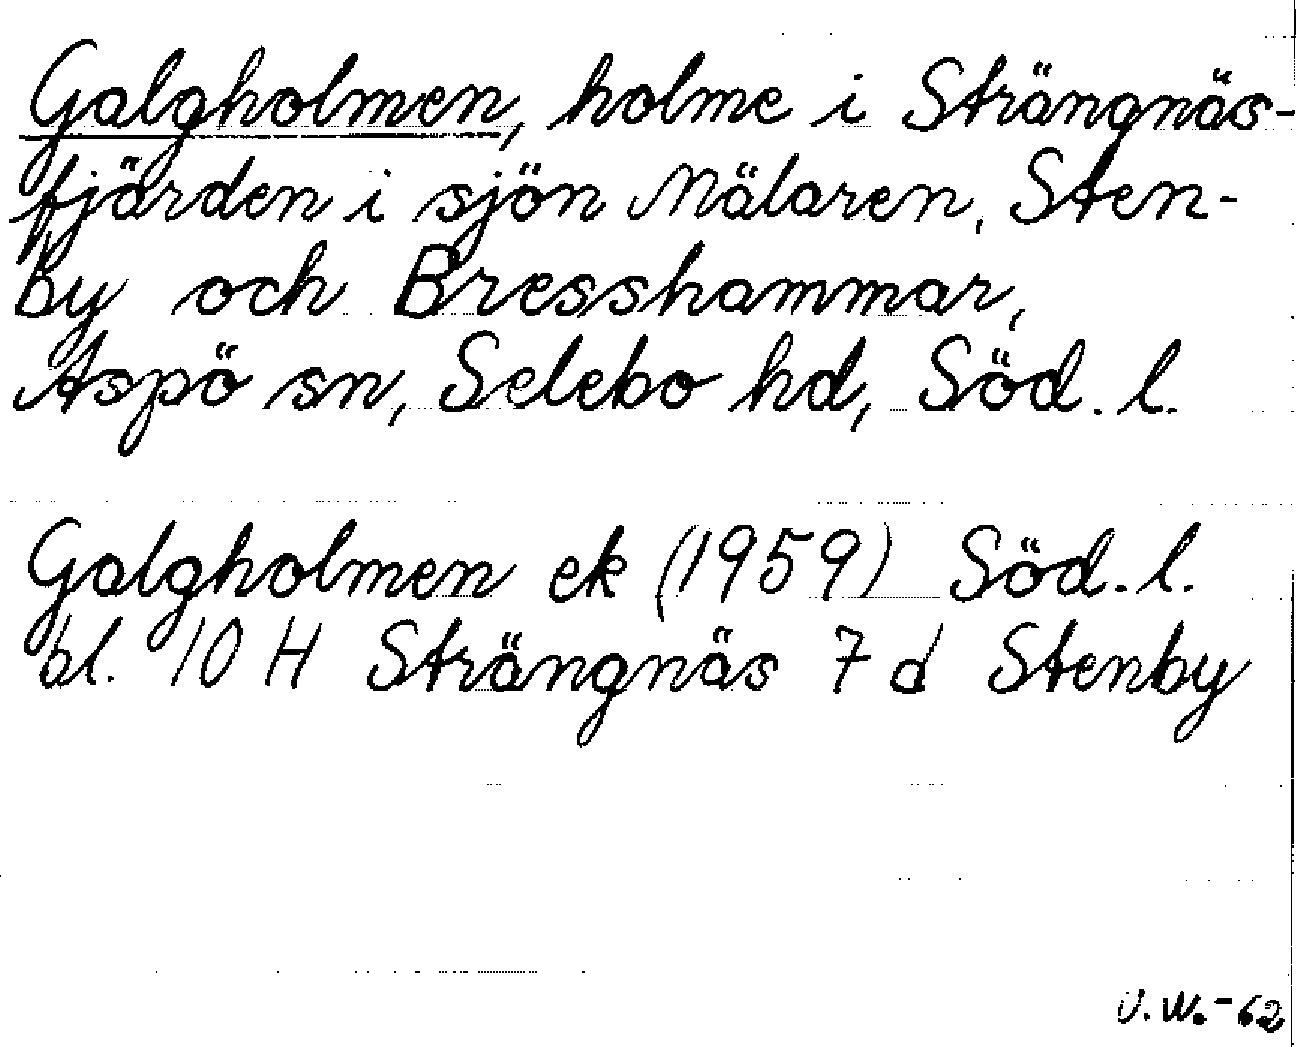 Galgholmen, holme i Strängnäs-
fjärden i sjön Mälaren, Sten-
by och Bresshammar,
Aspö sn, Selebo hd, Söd. l.
Galgholmen ek (1959) Söd. l.
bl. 10 H Strängnäs 7 d Stenby
U. W. -62